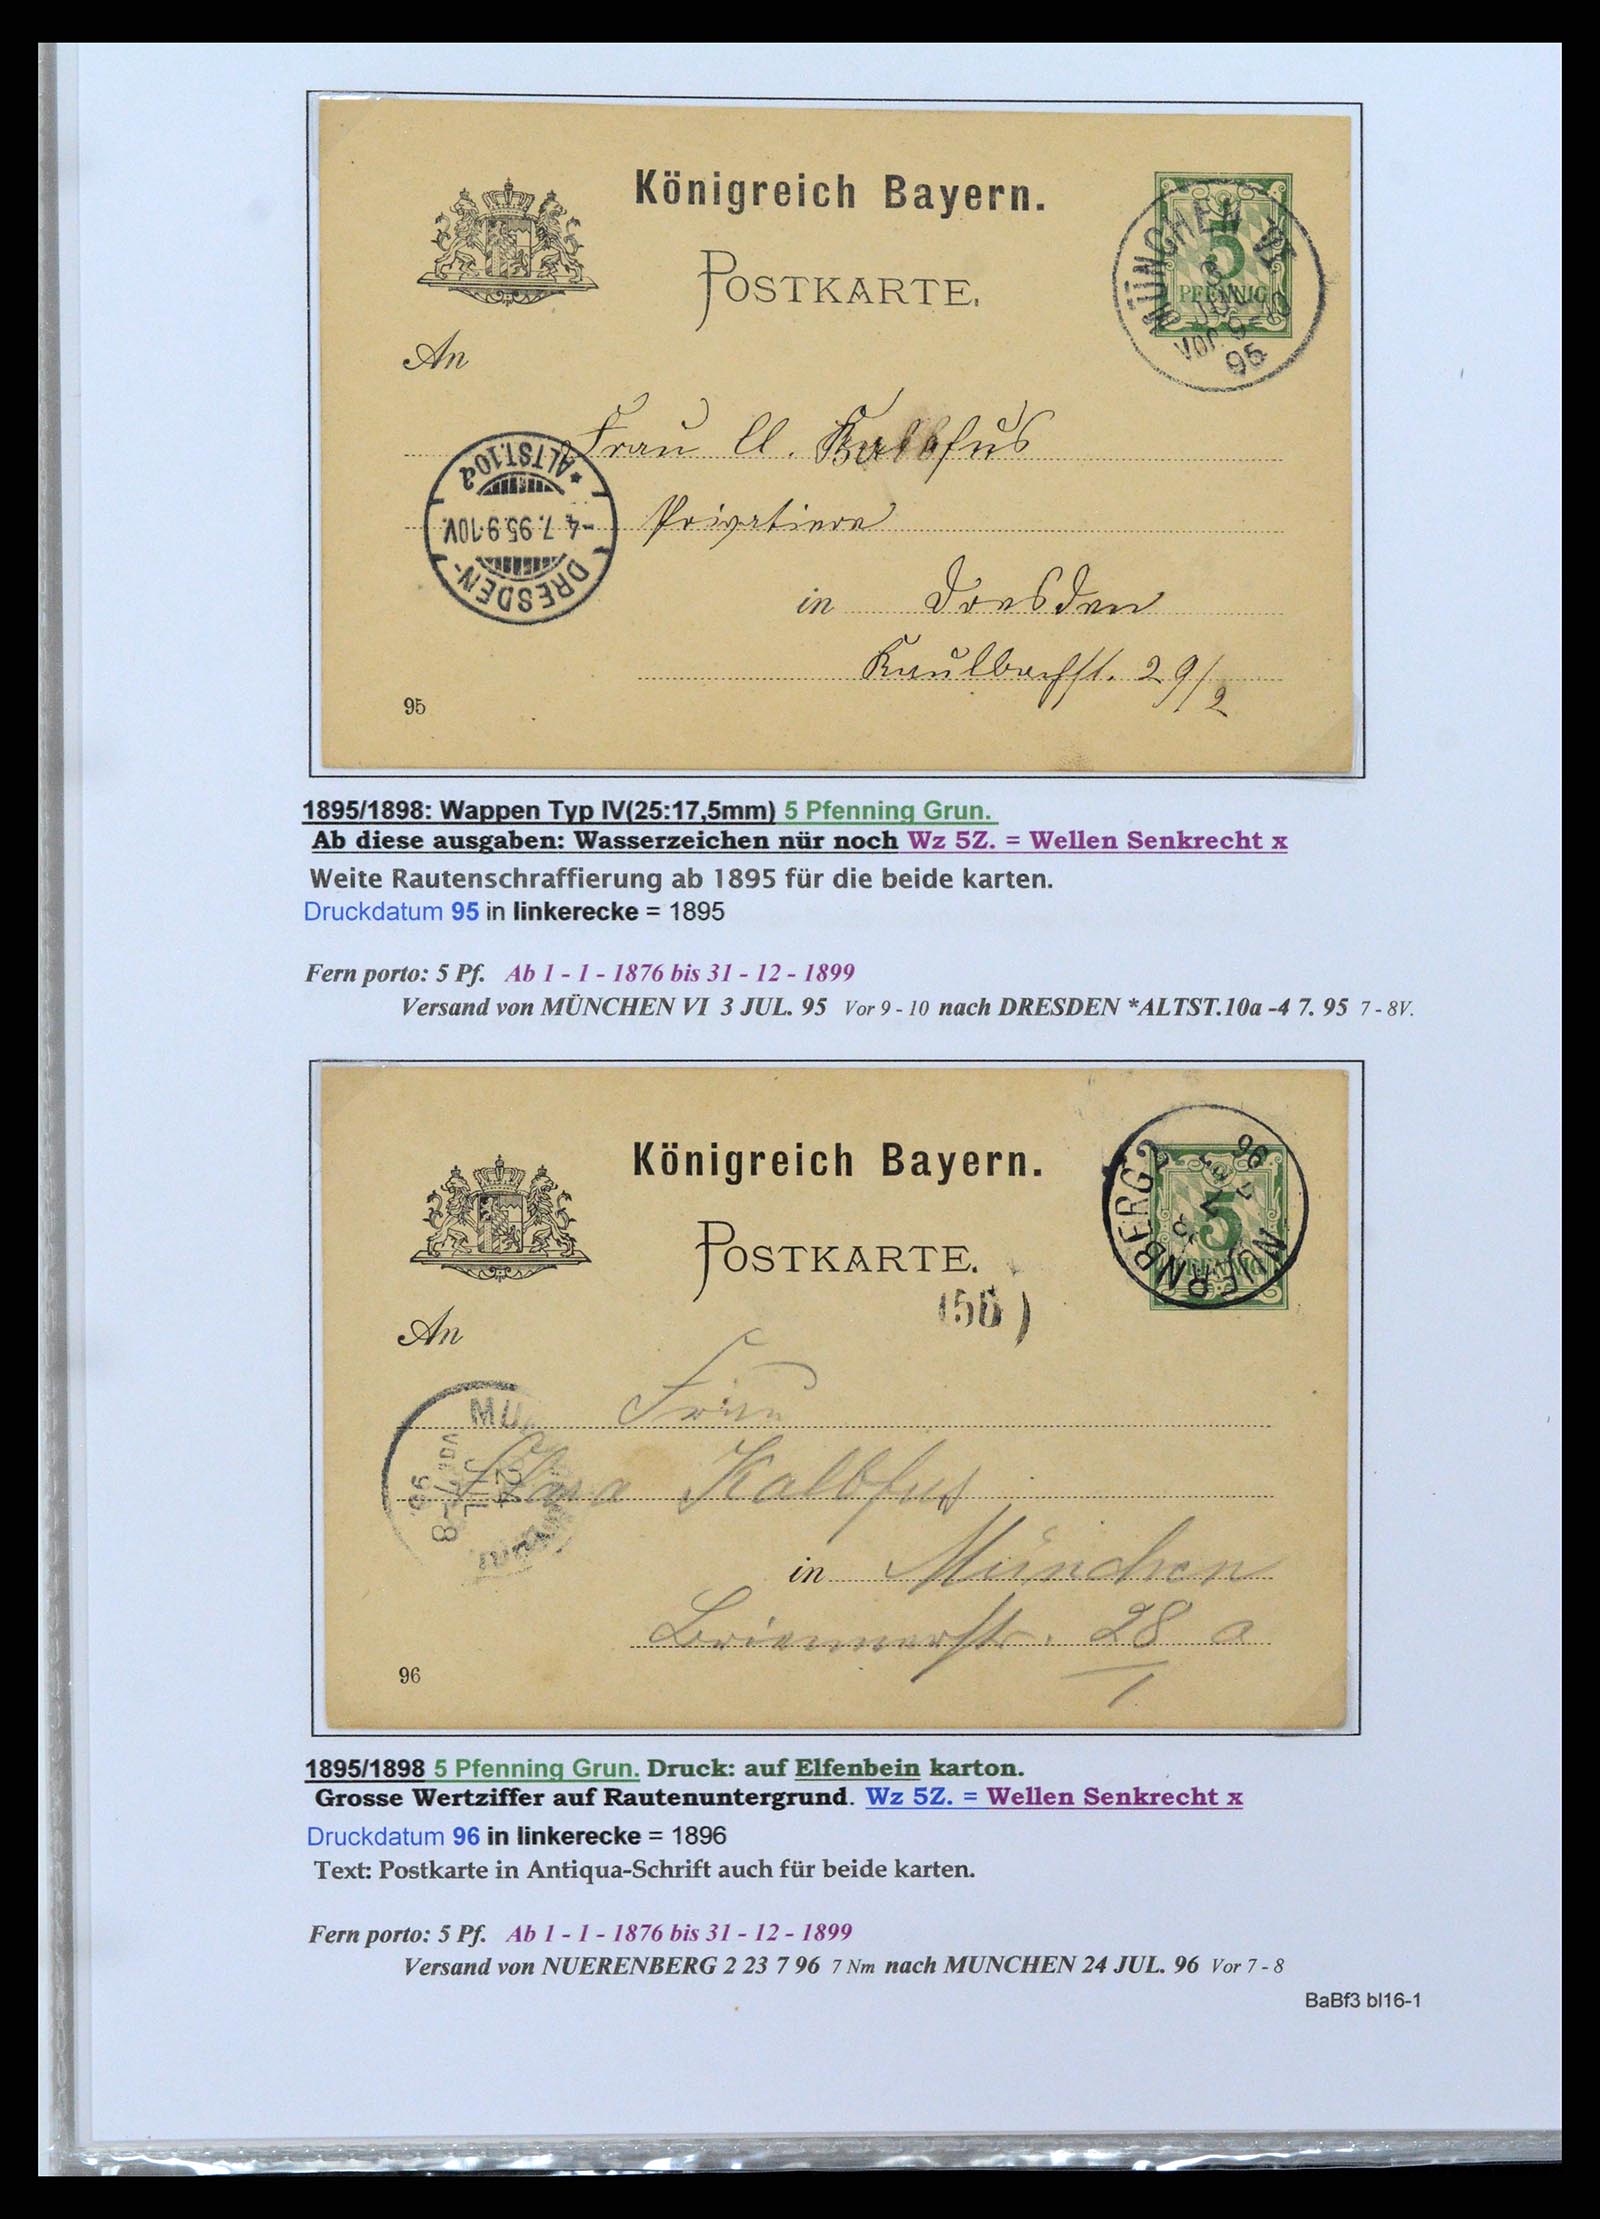 Königreich Bayern.
5
PFENNIG
MÜNCHEN VI
3
JUL
Vor. 9-10
95
POSTKARTE.
An
Frau Cl. Kalbfus
Privatiere
in Dresden
Kaulbachst. 29/2
DRESDEN-
-4.7.95.9-10V.
*ALTST.10a
95
1895/1898: Wappen Typ IV(25:17,5mm) 5 Pfenning Grun.
Ab diese ausgaben: Wasserzeichen nür noch Wz 5Z. = Wellen Senkrecht x
Weite Rautenschraffierung ab 1895 für die beide karten.
Druckdatum 95 in linkerecke = 1895
Fern porto: 5 Pf. Ab 1 - 1 - 1876 bis 31 - 12 - 1899
Versand von MÜNCHEN VI 3 JUL. 95 Vor 9 - 10 nach DRESDEN *ALTST.10a -4 7. 95 7 - 8V.
Königreich Bayern.
5
NUERNBERG 2
96
POSTKARTE.
(56)
An
Frau
Clara Kalbfus
in München
Briennerstr. 28 a
1
24
JUL
Vor. 7-8
96
96
1895/1898 5 Pfenning Grun. Druck: auf Elfenbein karton.
Grosse Wertziffer auf Rautenuntergrund. Wz 5Z. = Wellen Senkrecht x
Druckdatum 96 in linkerecke = 1896
Text: Postkarte in Antiqua-Schrift auch für beide karten.
Fern porto: 5 Pf. Ab 1 - 1 - 1876 bis 31 - 12 - 1899
Versand von NUERENBERG 2 23 7 96 7 Nm nach MUNCHEN 24 JUL. 96 Vor 7 - 8
BaBf3 bl16-1